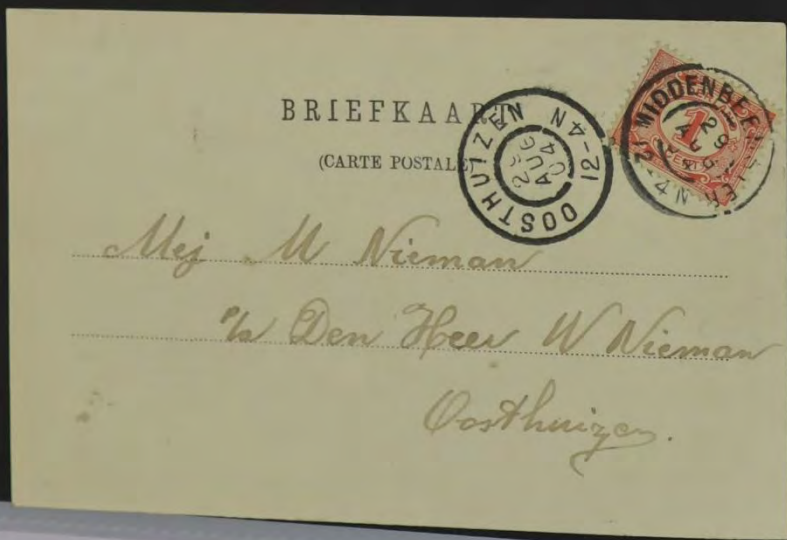 BRIEFKAART
(CARTE POSTALE)
OOSTHUIZEN
12-4N
29
AUG
04
MIDDENBEEMSTER
1
CENT
Mej M Nieman
p/a Den Heer W Nieman
Oosthuizen.